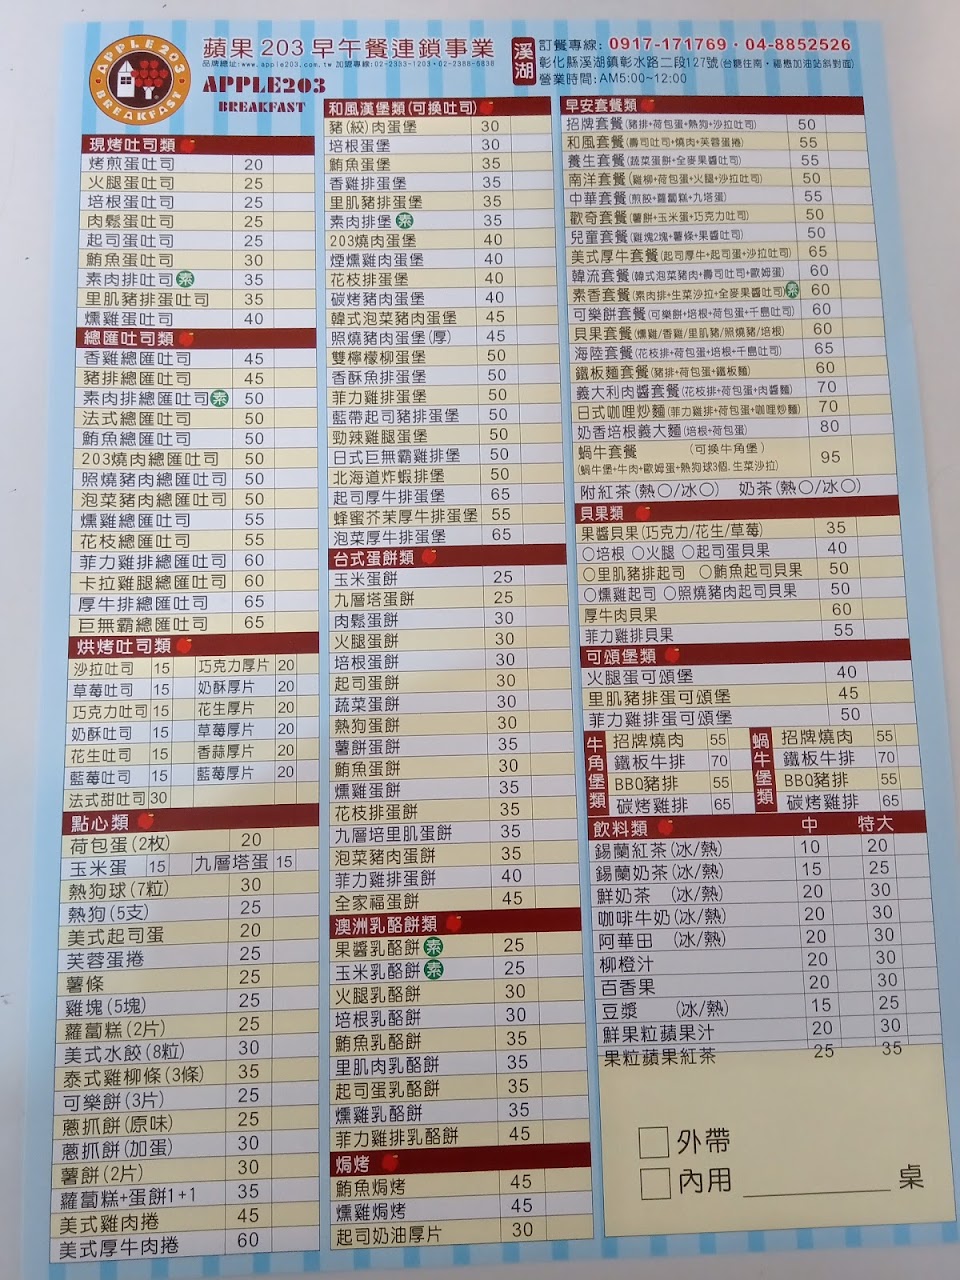 APPLE203
BREAKFAST
蘋果 203 早午餐連鎖事業
品牌總址:www.apple203.com.tw 加盟專線:02-2333-1203・02-2388-5838
APPLE203
BREAKFAST
溪湖
訂餐專線: 0917-171769・04-8852526
彰化縣溪湖鎮彰水路二段127號(台糖往南・福懋加油站斜對面)
營業時間:AM5:00~12:00
現烤吐司類
烤煎蛋吐司 20
火腿蛋吐司 25
培根蛋吐司 25
肉鬆蛋吐司 25
起司蛋吐司 25
鮪魚蛋吐司 30
素肉排吐司 素 35
里肌豬排蛋吐司 35
燻雞蛋吐司 40
總匯吐司類
香雞總匯吐司 45
豬排總匯吐司 45
素肉排總匯吐司 素 50
法式總匯吐司 50
鮪魚總匯吐司 50
203燒肉總匯吐司 50
照燒豬肉總匯吐司 50
泡菜豬肉總匯吐司 50
燻雞總匯吐司 55
花枝總匯吐司 55
菲力雞排總匯吐司 60
卡拉雞腿總匯吐司 60
厚牛排總匯吐司 65
巨無霸總匯吐司 65
烘烤吐司類
沙拉吐司 15 巧克力厚片 20
草莓吐司 15 奶酥厚片 20
巧克力吐司 15 花生厚片 20
奶酥吐司 15 草莓厚片 20
花生吐司 15 香蒜厚片 20
藍莓吐司 15 藍莓厚片 20
法式甜吐司 30
點心類
荷包蛋(2枚) 20
玉米蛋 15 九層塔蛋 15
熱狗球(7粒) 30
熱狗(5支) 25
美式起司蛋 20
芙蓉蛋捲 25
薯條 25
雞塊(5塊) 25
蘿蔔糕(2片) 25
美式水餃(8粒) 30
泰式雞柳條(3條) 35
可樂餅(3片) 25
蔥抓餅(原味) 25
蔥抓餅(加蛋) 30
薯餅(2片) 30
蘿蔔糕+蛋餅1+1 35
美式雞肉捲 45
美式厚牛肉捲 60
和風漢堡類(可換吐司)
豬(絞)肉蛋堡 30
培根蛋堡 30
鮪魚蛋堡 35
香雞排蛋堡 35
里肌豬排蛋堡 35
素肉排堡 素 35
203燒肉蛋堡 40
煙燻雞肉蛋堡 40
花枝排蛋堡 40
碳烤豬肉蛋堡 40
韓式泡菜豬肉蛋堡 45
照燒豬肉蛋堡(厚) 45
雙檸檬柳蛋堡 50
香酥魚排蛋堡 50
菲力雞排蛋堡 50
藍帶起司豬排蛋堡 50
勁辣雞腿蛋堡 50
日式巨無霸雞排堡 50
北海道炸蝦排堡 50
起司厚牛排蛋堡 65
蜂蜜芥茉厚牛排蛋堡 55
泡菜厚牛排蛋堡 65
台式蛋餅類
玉米蛋餅 25
九層塔蛋餅 25
肉鬆蛋餅 30
火腿蛋餅 30
培根蛋餅 30
起司蛋餅 30
蔬菜蛋餅 30
熱狗蛋餅 30
薯餅蛋餅 35
鮪魚蛋餅 30
燻雞蛋餅 35
花枝排蛋餅 35
九層培里肌蛋餅 35
泡菜豬肉蛋餅 35
菲力雞排蛋餅 40
全家福蛋餅 45
澳洲乳酪餅類
果醬乳酪餅 素 25
玉米乳酪餅 素 25
火腿乳酪餅 30
培根乳酪餅 30
鮪魚乳酪餅 35
里肌肉乳酪餅 35
起司蛋乳酪餅 35
燻雞乳酪餅 35
菲力雞排乳酪餅 45
焗烤
鮪魚焗烤 45
燻雞焗烤 45
起司奶油厚片 30
早安套餐類
招牌套餐(豬排+荷包蛋+熱狗+沙拉吐司) 50
和風套餐(壽司吐司+燒肉+芙蓉蛋捲) 55
養生套餐(蔬菜蛋餅+全麥果醬吐司) 55
南洋套餐(雞柳+荷包蛋+火腿+沙拉吐司) 50
中華套餐(煎餃+蘿蔔糕+九塔蛋) 55
歡奇套餐(薯餅+玉米蛋+巧克力吐司) 50
兒童套餐(雞塊2塊+薯條+果醬吐司) 50
美式厚牛套餐(起司厚牛+起司蛋+沙拉吐司) 65
韓流套餐(韓式泡菜豬肉+壽司吐司+歐姆蛋) 60
素香套餐(素肉排+生菜沙拉+全麥果醬吐司) 素 60
可樂餅套餐(可樂餅+培根+荷包蛋+千島吐司) 60
貝果套餐(燻雞/香雞/里肌豬/照燒豬/培根) 60
海陸套餐(花枝排+荷包蛋+培根+千島吐司) 65
鐵板麵套餐(豬排+荷包蛋+鐵板麵) 60
義大利肉醬套餐(花枝排+荷包蛋+肉醬麵) 70
日式咖哩炒麵(菲力雞排+荷包蛋+咖哩炒麵) 70
奶香培根義大麵(培根+荷包蛋) 80
蝸牛套餐 (可換牛角堡)
(蝸牛堡+牛肉+歐姆蛋+熱狗球3個,生菜沙拉) 95
附紅茶(熱○/冰○) 奶茶(熱○/冰○)
貝果類
果醬貝果(巧克力/花生/草莓) 35
○培根 ○火腿 ○起司蛋貝果 40
○里肌豬排起司 ○鮪魚起司貝果 50
○燻雞起司 ○照燒豬肉起司貝果 50
厚牛肉貝果 60
菲力雞排貝果 55
可頌堡類
火腿蛋可頌堡 40
里肌豬排蛋可頌堡 45
菲力雞排蛋可頌堡 50
牛角堡類
招牌燒肉 55
鐵板牛排 70
BBQ豬排 55
碳烤雞排 65
蝸牛堡類
招牌燒肉 55
鐵板牛排 70
BBQ豬排 55
碳烤雞排 65
飲料類 中 特大
錫蘭紅茶(冰/熱) 10 20
錫蘭奶茶(冰/熱) 15 25
鮮奶茶 (冰/熱) 20 30
咖啡牛奶(冰/熱) 20 30
阿華田 (冰/熱) 20 30
柳橙汁 20 30
百香果 20 30
豆漿 (冰/熱) 15 25
鮮果粒蘋果汁 20 30
果粒蘋果紅茶 25 35
外帶
內用 桌